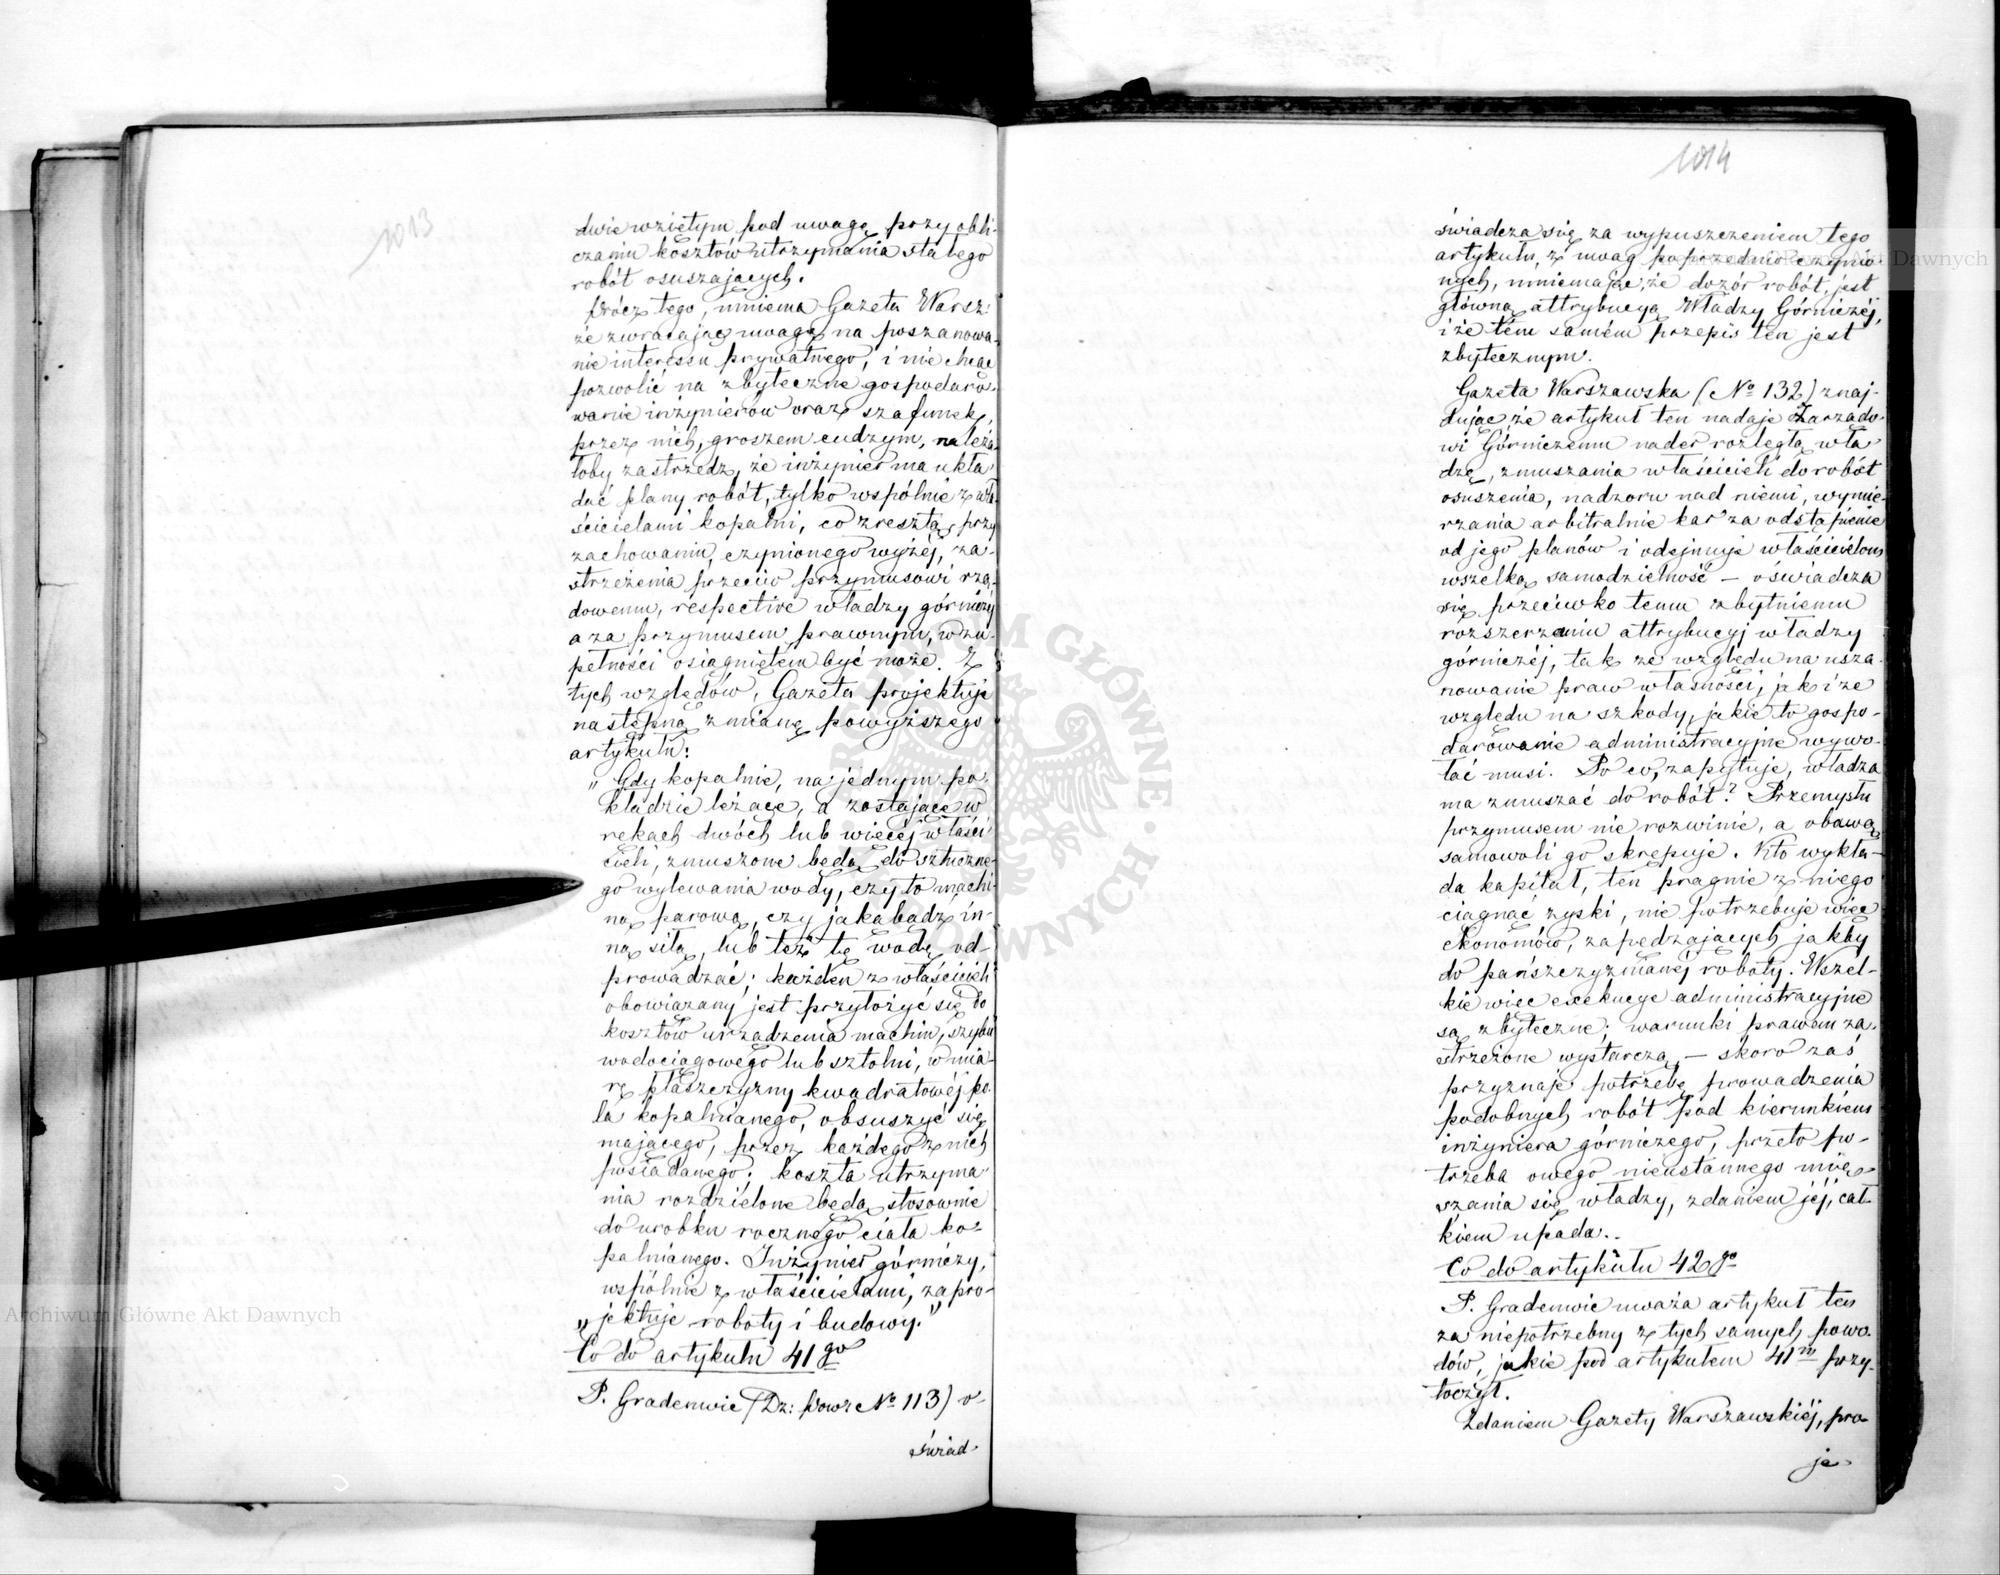 1013
dwie wziętym pod uwagę przy obli-
czaniu kosztów utrzymania stałego
robót osuszających.
Prócz tego, mniema Gazeta Warsz:
że zwracając uwagę na poszanowa-
nie interessu prywatnego, i nie chcąc
pozwolić na zbyteczne gospodaro-
wanie inżynierów oraz szafunek,
przez nich, groszem cudzym, należa-
łoby zastrzedz, że inżynier ma ukła-
dać plany robót, tylko wspólnie z wła-
ścicielami kopalni, co zresztą, przy
zachowaniu, czynionego wyżéj, za-
strzeżenia przeciw przymusowi rzą-
dowemu, respective władzy górniczéj
a za przymusem prawnym, w zu-
pełności osiągniętem być może. Z
tych względów, Gazeta projektuje
następną zmianę powyższego
artykułu:
„Gdy kopalnie, na jednym po-
kładzie leżące, a zostające w
rękach dwóch lub więcéj właści-
cieli, zmuszone będą do sztuczne-
go wylewania wody, czy to machi-
ną parową, czy jakąbądź in-
ną siłą, lub też tę wodę od-
prowadzać; każden z właścicieli
obowiązany jest przyłożyć się do
kosztów urządzenia machin, szybu
wodociągowego lub sztolni, w mia-
rę płaszczyzny kwadratowéj po-
la kopalnianego, obsuszyć się
mającego, przez każdego z nich
posiadanego; koszta utrzyma-
nia rozdzielone będą stosownie
do urobku rocznego ciała ko-
palnianego. Inżynier górniczy,
wspólnie z właścicielami, zapro-
„jektuje roboty i budowy."
Co do artykułu 41go
P. Gradenwic (Dz: Powz No 113) o-
świad-
1014
świadcza się za wypuszczeniem tego
artykułu, z uwag poprzednio czynio-
nych, mniemając, że dozór robót, jest
główną attrybucyą Władzy Górniczéj,
i że tém samém przepis ten jest
zbytecznym.
Gazeta Warszawska (No 132) znaj-
dując, że artykuł ten nadaje Zarządo-
wi Górniczemu nader rozległą wła-
dzę, zmuszania właścicieli do robót
osuszenia, nadzoru nad niemi, wymie-
rzania arbitralnie kar za odstąpienie
od jego planów i odejmuje właścicielom
wszelką samodzielność – oświadcza
się przeciwko temu zbytniemu
rozszerzaniu attrybucyj władzy
górniczéj, tak ze względu na usza-
nowanie praw własności, jak i ze
względu na szkody, jakie to gospo-
darowanie administracyjne wywo-
łać musi. Po co, zapytuje, władza
ma zmuszać do robót? Przemysłu
przymusem nie rozwinie, a obawą
samowoli go skrępuje. Kto wykła-
da kapitał, ten pragnie z niego
ciągnąć zyski, nie potrzebuje więc
ekonomów, zapędzających jakby
do pańszczyznianéj roboty. Wszel-
kie więc exekucye administracyjne
są zbyteczne; warunki prawem za-
strzeżone wystarczą, – skoro zaś
przyznaje potrzebę prowadzenia
podobnych robót pod kierunkiem
inżyniera górniczego, przeto po-
trzeba owego nieustannego mię-
szania się władzy, zdaniem jéj, cał-
kiem upada..
Co do artykułu 42go
P. Gradenwic uważa artykuł ten
za niepotrzebny z tych samych powo-
dów, jakie pod artykułem 41m przy-
toczył.
Zdaniem Gazety Warszawskiéj, pro-
je-
ARCHIWUM GŁÓWNE AKT DAWNYCH
Archiwum Główne Akt Dawnych
Archiwum Główne Akt Dawnych